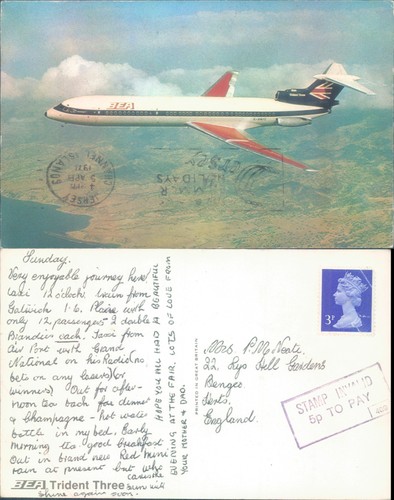 BEA
JERSEY
CHANNEL ISLANDS
5 APR
1971
Sunday.
Very enjoyable journey here
taxi 12 o'clock train from
Gatwick 1.6. Plane with
only 12 passengers 2 double
Brandies each. Taxi from
Air Port with Grand
National on his Radio (no
bets on any losers) or
winners) Out for after-
noon tea back for dinner
& Champagne - hot water
bottle in my bed. Early
morning tea good breakfast
Out in brand new Red mini
rain at present but
sun will
shine again soon.
HOPE YOU ALL HAD A BEAUTIFUL
EVENING AT THE FAIR. LOTS OF LOVE FROM
YOUR MOTHER & DAD.
PRINTED IN GREAT BRITAIN
3P
Mrs P. McNeate,
22, Rys Hill Gardens
Bengeo
Herts.
England.
STAMP INVALID
5p TO PAY
BEA Trident Three